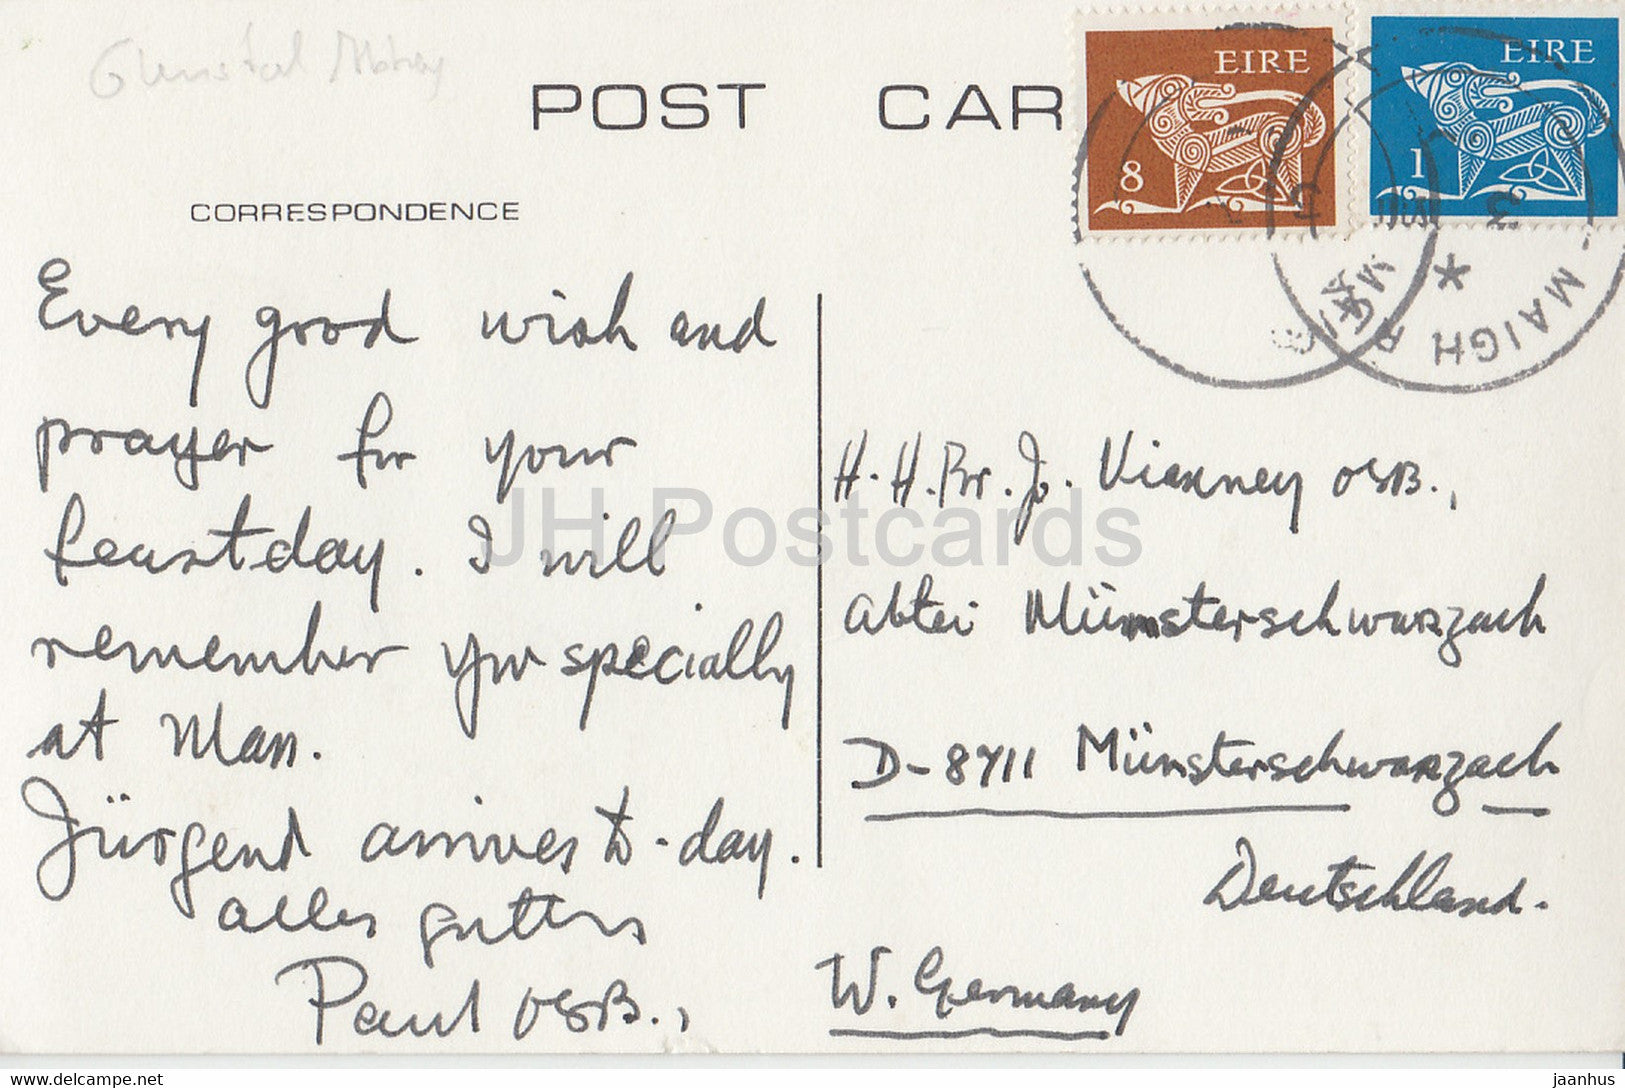 Glenstal Abbey
POST CAR
EIRE
8
EIRE
1
MAIGH
CORRESPONDENCE
Every good wish and
prayer for your
feastday. I will
remember you specially
at Mass.
Jürgend arrives to-day.
alles guttes
Paul OSB.,
H.H.Br.J. Vianney OSB.,
abtei Münsterschwarzach
D-8711 Münsterschwarzach
Deutschland.
W. Germany
JH Postcards
www.delcampe.net
jaanhus